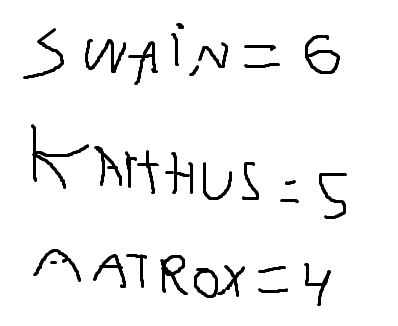 SWAIN = 6
KARTHUS = 5
AATROX = 4